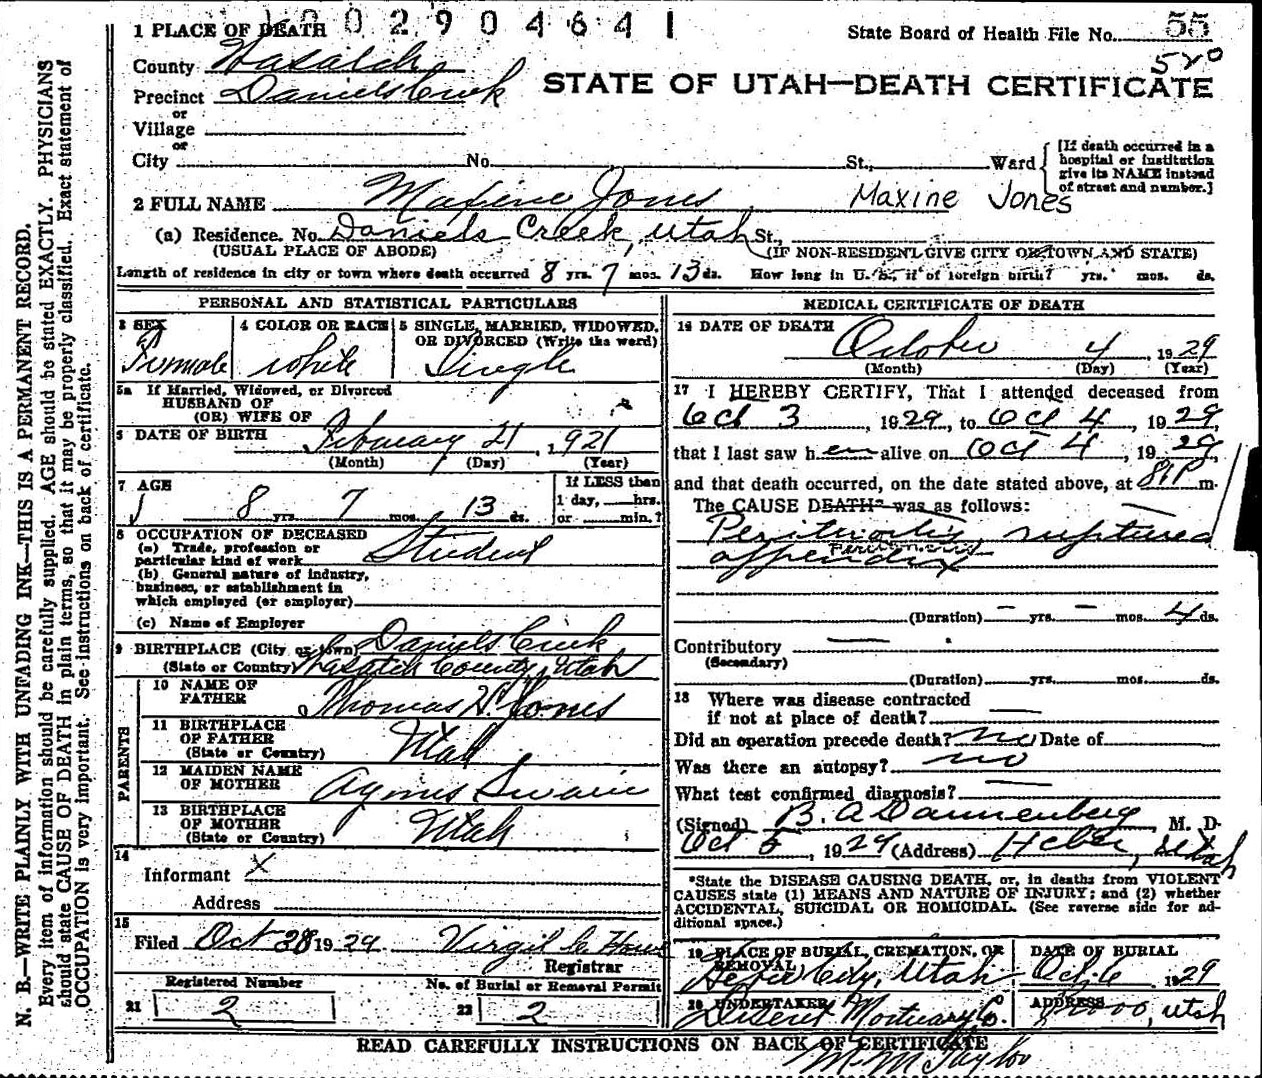 1002904641
1 PLACE OF DEATH
State Board of Health File No. 55
520
County Wasatch
STATE OF UTAH—DEATH CERTIFICATE
Precinct Daniels Creek
or
Village
or
City No. St., Ward
[If death occurred in a hospital or institution give its NAME instead of street and number.]
2 FULL NAME Maxine Jones Maxine Jones
(a) Residence. No. Daniels Creek, Utah St.,
(USUAL PLACE OF ABODE) (IF NON-RESIDENT, GIVE CITY OR TOWN AND STATE)
Length of residence in city or town where death occurred 8 yrs. 7 mos. 13 ds. How long in U. S., if of foreign birth? yrs. mos. ds.
PERSONAL AND STATISTICAL PARTICULARS
3 SEX
Female
4 COLOR OR RACE
white
5 SINGLE, MARRIED, WIDOWED,
OR DIVORCED (Write the word)
Single
5a If Married, Widowed, or Divorced
HUSBAND OF
(OR) WIFE OF
6 DATE OF BIRTH February 21, 1921
(Month) (Day) (Year)
7 AGE
8 yrs. 7 mos. 13 ds.
If LESS than
1 day, hrs.
or min.?
8 OCCUPATION OF DECEASED
(a) Trade, profession or
particular kind of work Student
(b) General nature of industry,
business, or establishment in
which employed (or employer)
(c) Name of Employer
9 BIRTHPLACE (City or town) Daniels Creek
(State or Country) Wasatch County, Utah
PARENTS
10 NAME OF
FATHER Thomas H. Jones
11 BIRTHPLACE
OF FATHER
(State or Country) Utah
12 MAIDEN NAME
OF MOTHER Agnes Swain
13 BIRTHPLACE
OF MOTHER
(State or Country) Utah
14
Informant X
Address
15
Filed Oct 28 1929 Virgil C
Registrar
Registered Number
No. of Burial or Removal Permit
21 2
22 2
MEDICAL CERTIFICATE OF DEATH
16 DATE OF DEATH
October 4, 1929
(Month) (Day) (Year)
17 I HEREBY CERTIFY, That I attended deceased from
Oct 3, 1929, to Oct 4, 1929,
that I last saw her alive on Oct 4, 1929,
and that death occurred, on the date stated above, at m.
The CAUSE DEATH* was as follows:
Peritonitis, ruptured
appendix
Peritonitis
(Duration) – yrs. – mos. 4 ds.
Contributory —
(Secondary)
(Duration) yrs. mos. ds.
18 Where was disease contracted
if not at place of death? —
Did an operation precede death? no Date of
Was there an autopsy? no
What test confirmed diagnosis? —
(Signed) B. A Dannenberg, M. D.
Oct 5, 1929 (Address) Heber, Utah
*State the DISEASE CAUSING DEATH, or, in deaths from VIOLENT
CAUSES state (1) MEANS AND NATURE OF INJURY; and (2) whether
ACCIDENTAL, SUICIDAL OR HOMICIDAL. (See reverse side for ad-
ditional space.)
19 PLACE OF BURIAL, CREMATION, OR
REMOVAL
Heber City, Utah
DATE OF BURIAL
Oct. 6 1929
20 UNDERTAKER
Deseret Mortuary Co.
ADDRESS
Provo, Utah
READ CAREFULLY INSTRUCTIONS ON BACK OF CERTIFICATE
M. M Taylor
N. B.—WRITE PLAINLY WITH UNFADING INK—THIS IS A PERMANENT RECORD.
Every item of information should be carefully supplied. AGE should be stated EXACTLY. PHYSICIANS
should state CAUSE OF DEATH in plain terms, so that it may be properly classified. Exact statement of
OCCUPATION is very important. See instructions on back of certificate.